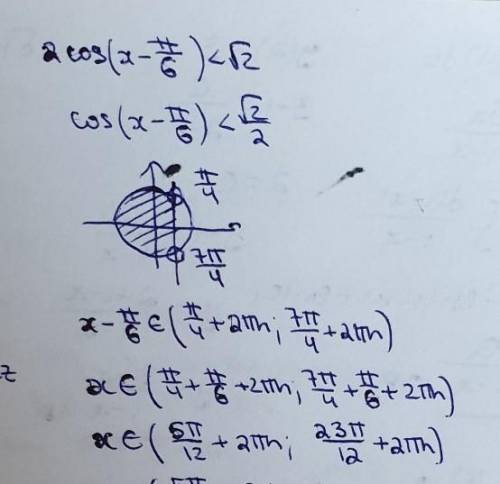 2cos(x-π/6)<√2
cos(x-π/6)<√2/2
π/4
7π/4
x-π/6∈(π/4+2πn; 7π/4+2πn)
x∈(π/4+π/6+2πn; 7π/4+π/6+2πn)
x∈(5π/12+2πn; 23π/12+2πn)